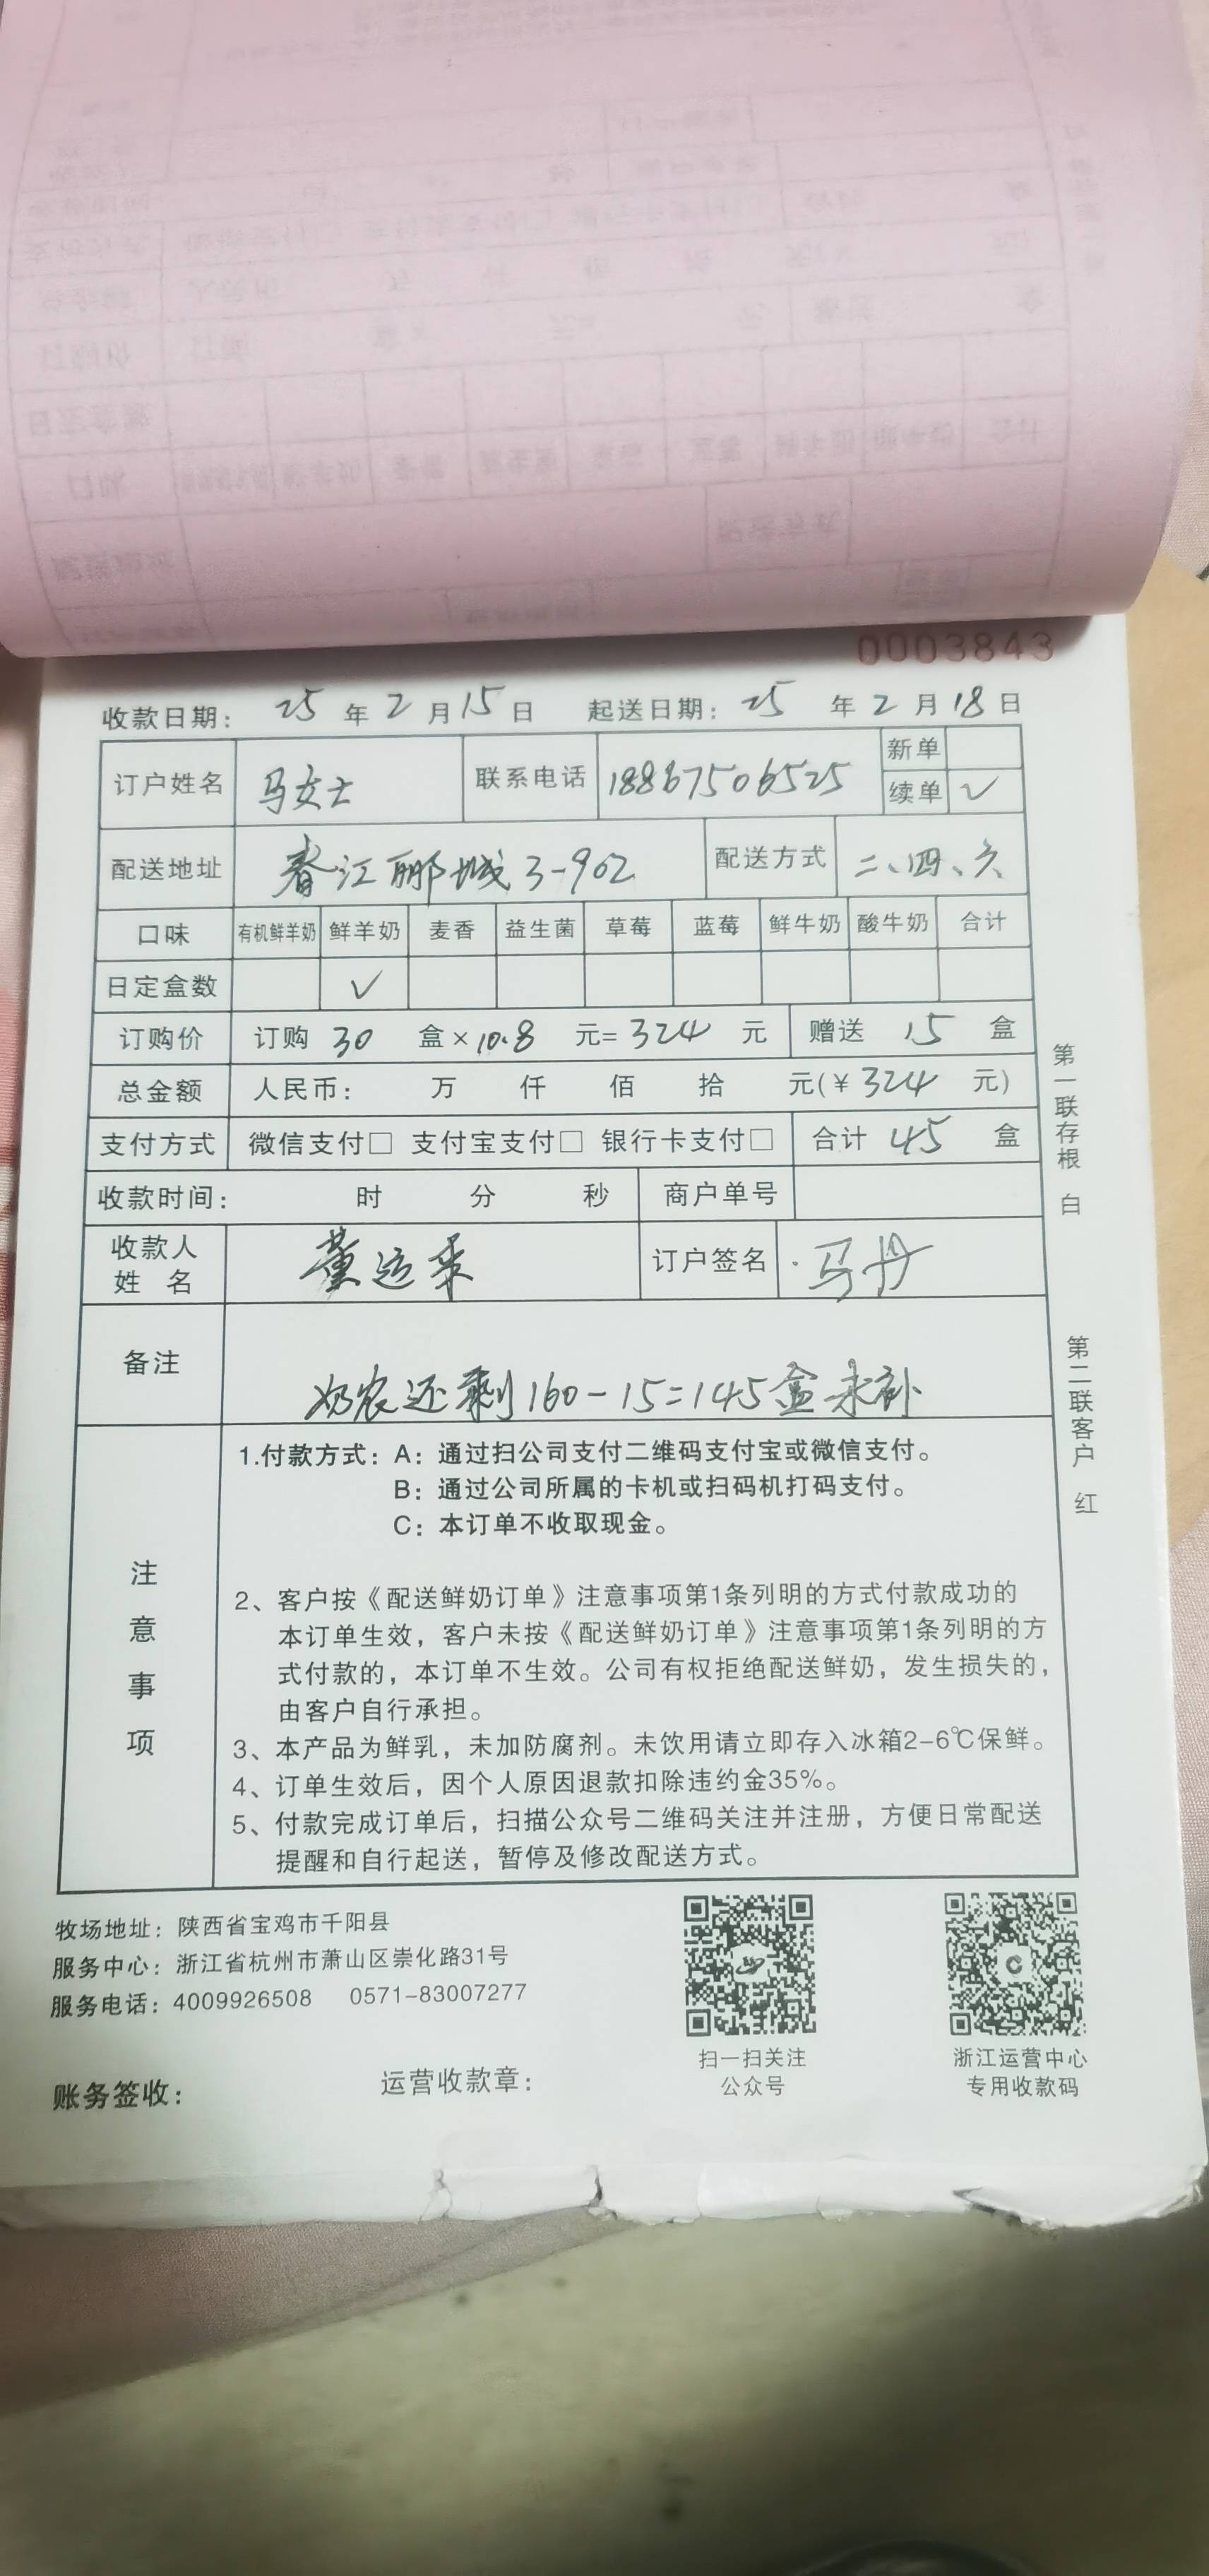 0003843
收款日期: 25 年 2 月 15 日 起送日期: 25 年 2 月 18 日
订户姓名 马女士 联系电话 18867506525 新单
续单 ✓
配送地址 春江郦城 3-902 配送方式 二、四、六
口味 有机鲜羊奶 鲜羊奶 麦香 益生菌 草莓 蓝莓 鲜牛奶 酸牛奶 合计
日定盒数 ✓
订购价 订购 30 盒×10.8 元=324 元 赠送 15 盒
总金额 人民币: 万 仟 佰 拾 元(¥324 元)
支付方式 微信支付□ 支付宝支付□ 银行卡支付□ 合计 45 盒
收款时间: 时 分 秒 商户单号
收款人姓名 董运采 订户签名 马丹
备注 奶农还剩160-15=145盒未补
注意事项
1.付款方式: A: 通过扫公司支付二维码支付宝或微信支付。
B: 通过公司所属的卡机或扫码机打码支付。
C: 本订单不收取现金。
2、客户按《配送鲜奶订单》注意事项第1条列明的方式付款成功的
本订单生效，客户未按《配送鲜奶订单》注意事项第1条列明的方
式付款的，本订单不生效。公司有权拒绝配送鲜奶，发生损失的，
由客户自行承担。
3、本产品为鲜乳，未加防腐剂。未饮用请立即存入冰箱2-6℃保鲜。
4、订单生效后，因个人原因退款扣除违约金35%。
5、付款完成订单后，扫描公众号二维码关注并注册，方便日常配送
提醒和自行起送，暂停及修改配送方式。
第一联存根 白
第二联客户 红
牧场地址: 陕西省宝鸡市千阳县
服务中心: 浙江省杭州市萧山区崇化路31号
服务电话: 4009926508 0571-83007277
扫一扫关注
公众号
浙江运营中心
专用收款码
账务签收: 运营收款章: